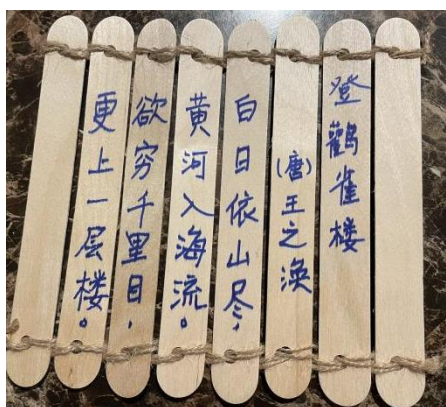 登鹳雀楼
(唐)王之涣
白日依山尽，
黄河入海流。
欲穷千里目，
更上一层楼。